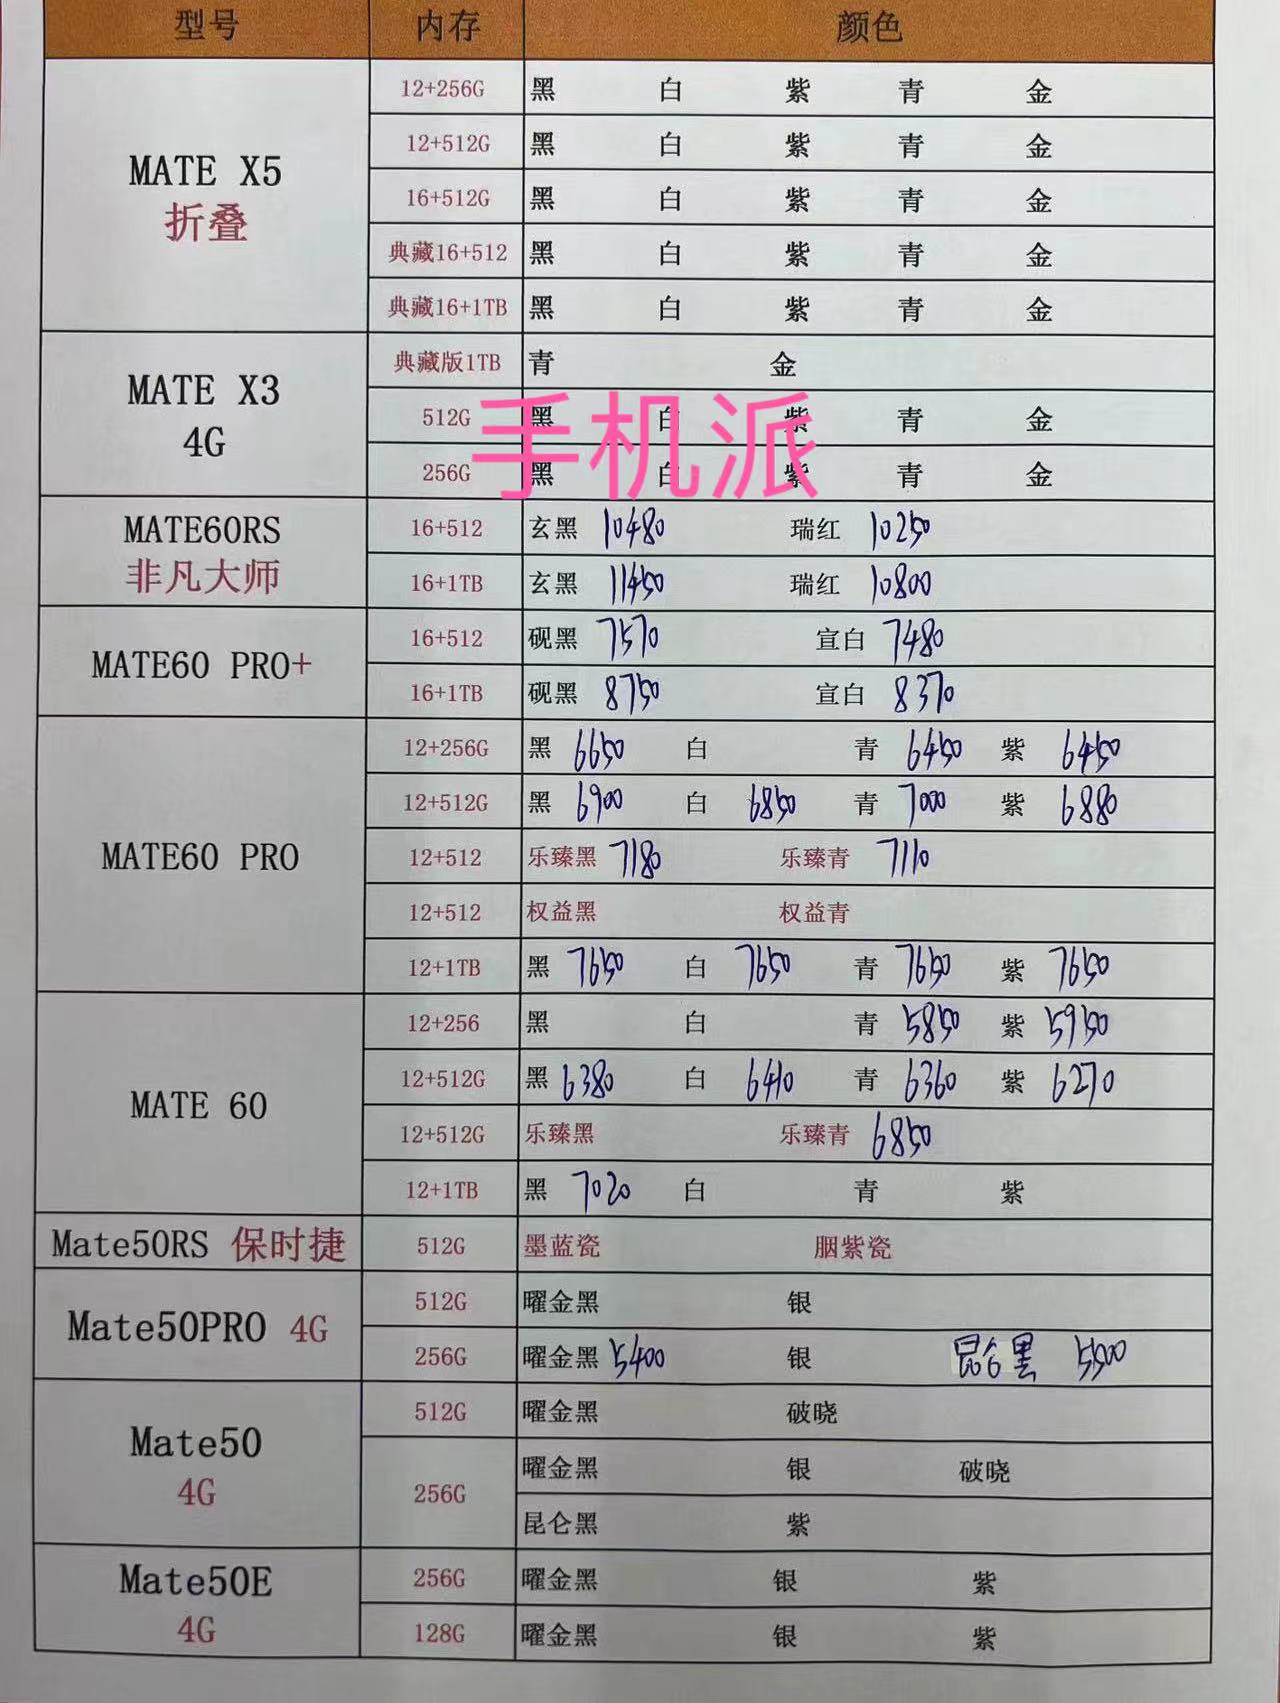 型号 内存 颜色
12+256G 黑 白 紫 青 金
12+512G 黑 白 紫 青 金
MATE X5
折叠
16+512G 黑 白 紫 青 金
典藏16+512 黑 白 紫 青 金
典藏16+1TB 黑 白 紫 青 金
典藏版1TB 青 金
MATE X3
4G
512G 黑 白 紫 青 金
手机派
256G 黑 白 紫 青 金
MATE60RS
非凡大师
16+512 玄黑 10480 瑞红 10250
16+1TB 玄黑 11450 瑞红 10800
MATE60 PRO+
16+512 砚黑 7570 宣白 7480
16+1TB 砚黑 8750 宣白 8370
12+256G 黑 6650 白 青 6450 紫 6450
12+512G 黑 6900 白 6850 青 7000 紫 6880
MATE60 PRO
12+512 乐臻黑 7180 乐臻青 7110
12+512 权益黑 权益青
12+1TB 黑 7650 白 7650 青 7650 紫 7650
12+256 黑 白 青 5850 紫 5950
MATE 60
12+512G 黑 6380 白 6410 青 6360 紫 6270
12+512G 乐臻黑 乐臻青 6850
12+1TB 黑 7020 白 青 紫
Mate50RS 保时捷 512G 墨蓝瓷 胭紫瓷
Mate50PRO 4G
512G 曜金黑 银
256G 曜金黑 5400 银 昆仑黑 5500
Mate50
4G
512G 曜金黑 破晓
256G 曜金黑 银 破晓
昆仑黑 紫
Mate50E
4G
256G 曜金黑 银 紫
128G 曜金黑 银 紫